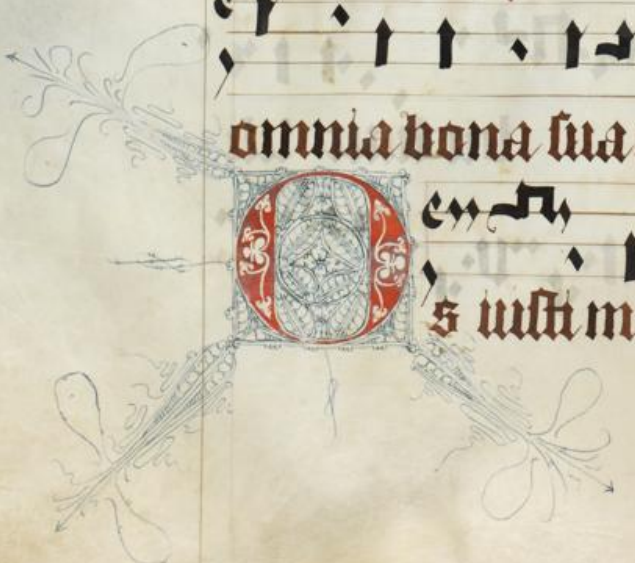 omnia bona sua
Os iusti m